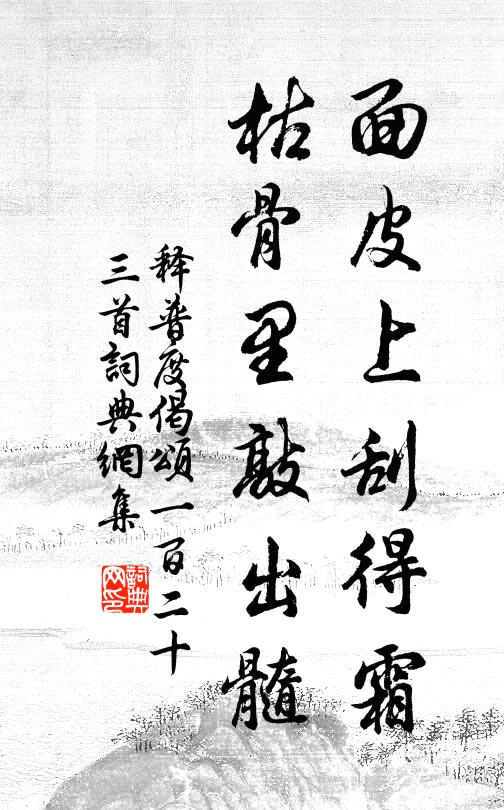 面皮上刮得霜
枯骨里敲出髓
释普度偈頌一百二十
三首詞典網集
詞典网印